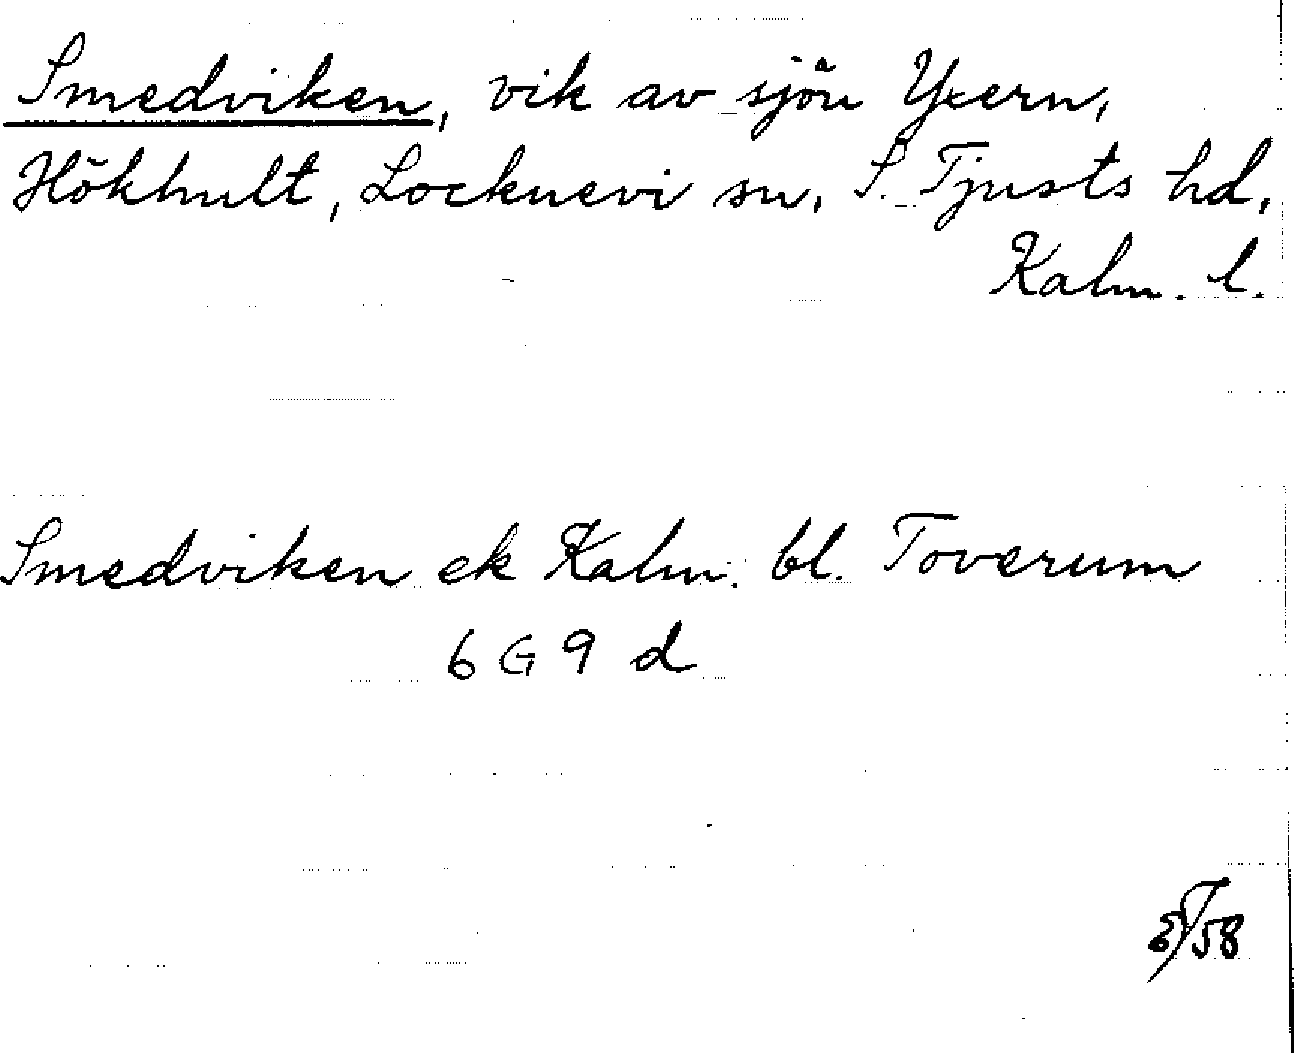 Smedviken, vik av sjön Yxern,
Hökhult, Locknevi sn, S. Tjusts hd,
Kalm. l.
Smedviken ek Kalm. bl. Toverum
6 G 9 d